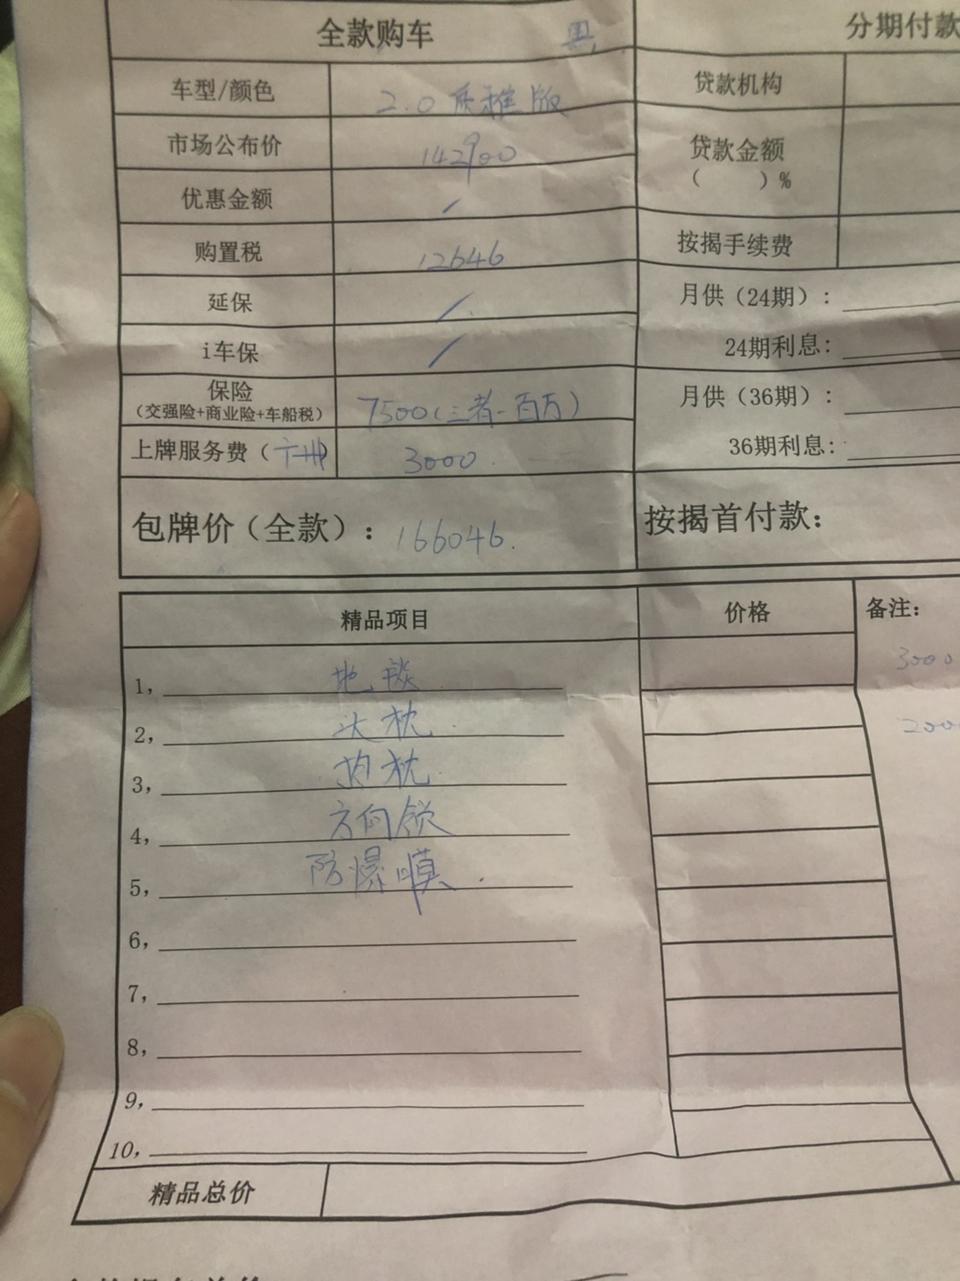 全款购车 黑
分期付款
车型/颜色 2.0质雅版
贷款机构
市场公布价 142900
贷款金额
( )%
优惠金额 /
购置税 12646
按揭手续费
延保 /
月供（24期）：
i车保 /
24期利息：
保险
（交强险+商业险+车船税） 7500(三者一百万)
月供（36期）：
上牌服务费（广州） 3000
36期利息：
包牌价（全款）：166046.
按揭首付款：
精品项目 价格 备注：
1, 地毯
3000
2, 头枕
3, 抱枕
4, 方向锁
5, 防爆膜
6,
7,
8,
9,
10,
精品总价